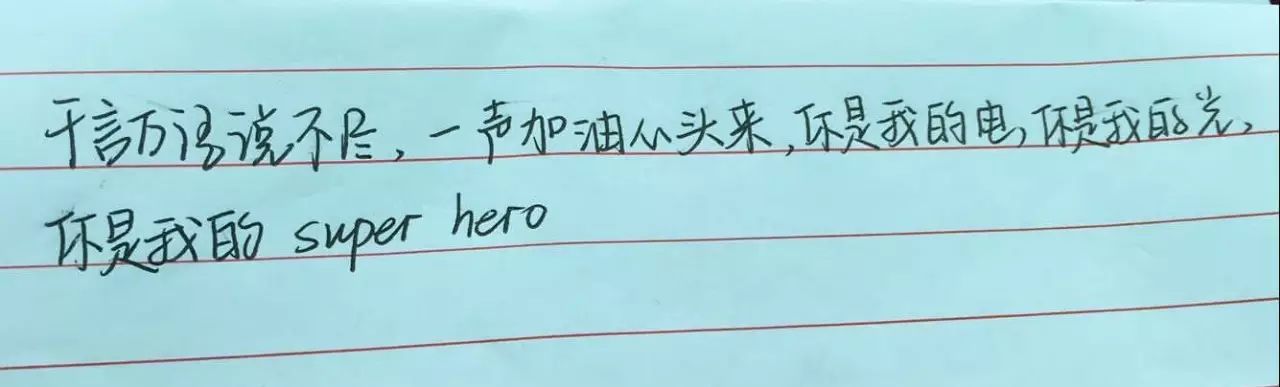 千言万语说不尽,一声加油从头来,你是我的电,你是我的光,
你是我的 super hero